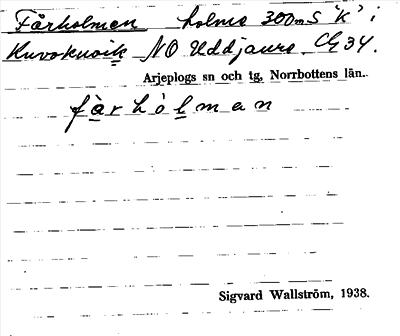 Fårholmen holme 300m S "K" i
Kuvokuoik NO Uddjaure Cg 34.
Arjeplogs sn och tg, Norrbottens län.
fàrhòlman
Sigvard Wallström, 1938.